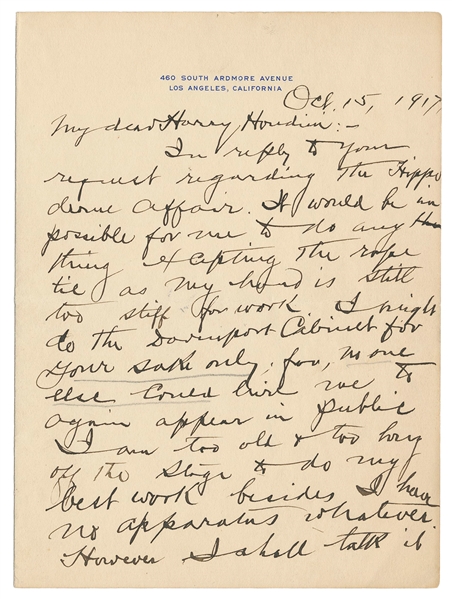 460 SOUTH ARDMORE AVENUE
LOS ANGELES, CALIFORNIA
Oct. 15, 1917
My dear Harry Houdini:-
In reply to your
request regarding the Hippo
drome affair. It would be im
possible for me to do any
thing excepting the rope
tie as my hand is still
too stiff for work. I might
do the Davenport Cabinet for
your sake only, for, no one
else could hire me to
again appear in public
I am too old & too long
off the stage to do my
best work besides I have
no apparatus whatever.
However I shall talk it